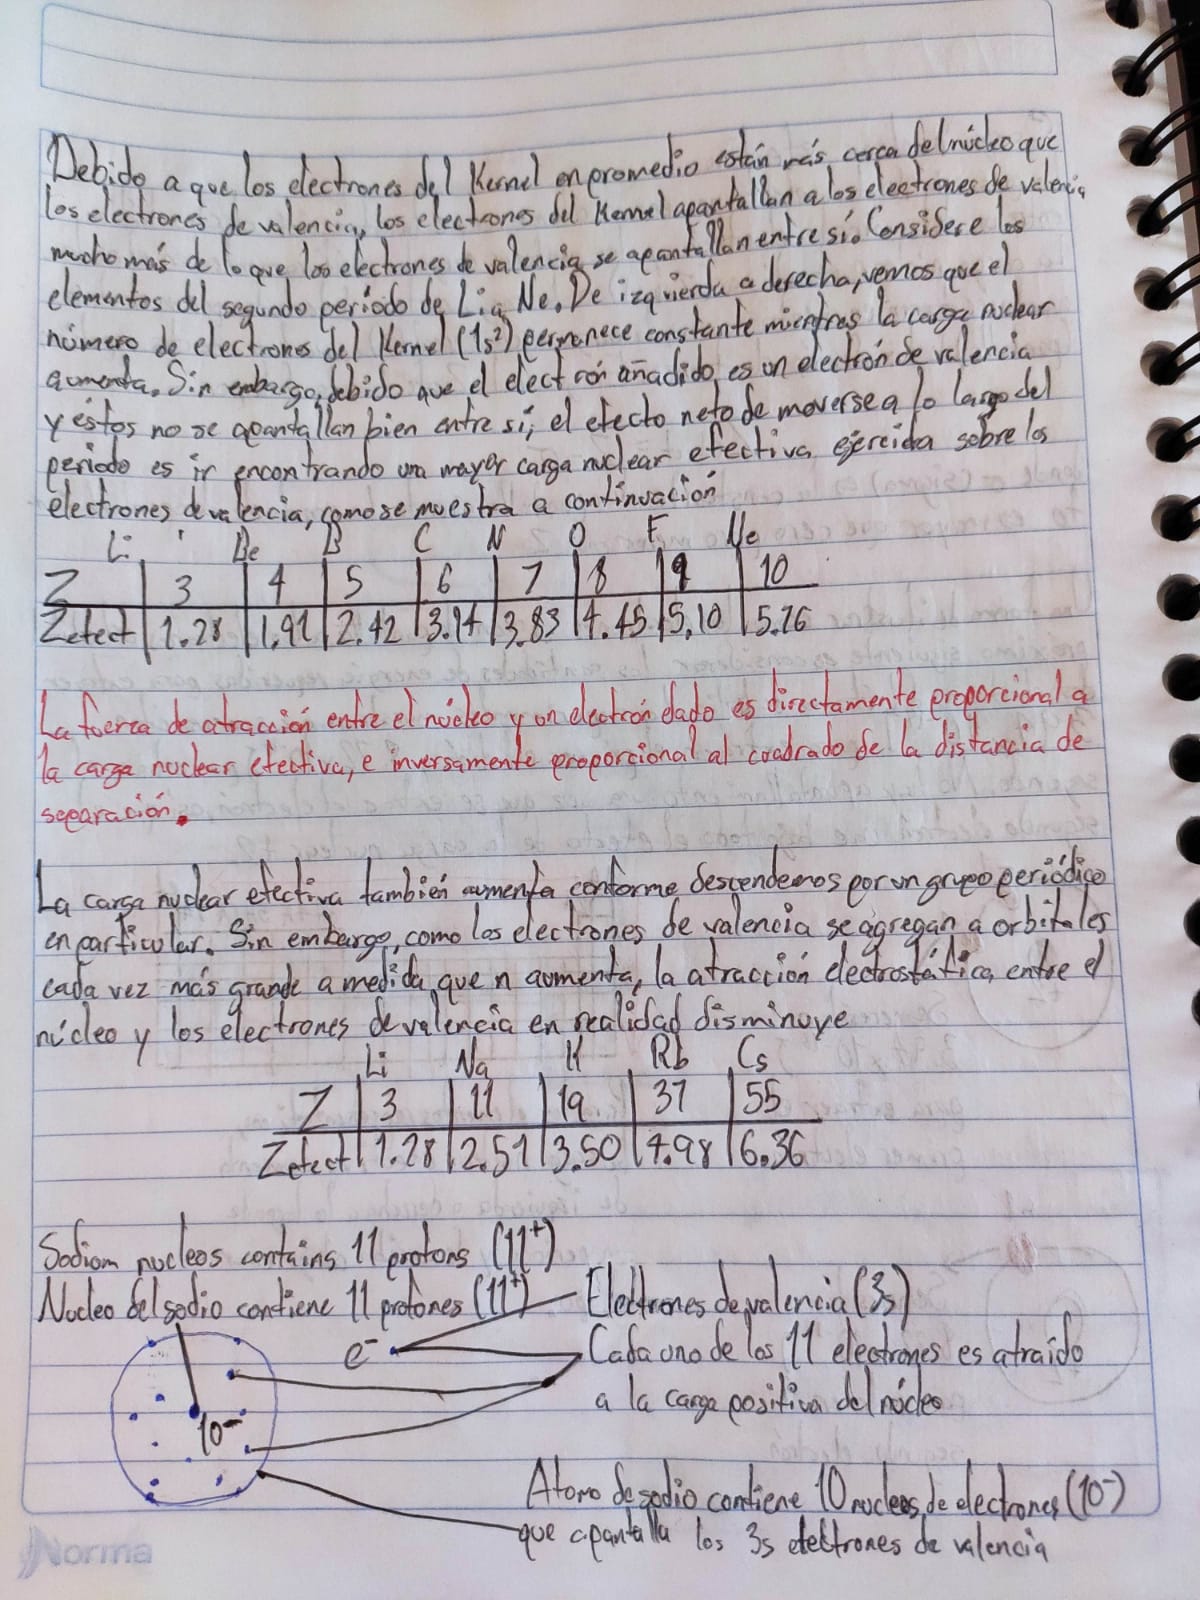 Debido a que los electrones del Kernel en promedio están más cerca del núcleo que
los electrones de valencia, los electrones del Kernel apantallan a los electrones de valencia
mucho más de lo que los electrones de valencia se apantallan entre sí. Considere los
elementos del segundo período de Li a Ne. De izquierda a derecha, vemos que el
número de electrones del Kernel (1s²) permanece constante mientras la carga nuclear
aumenta. Sin embargo, debido que el electrón añadido es un electrón de valencia
y éstos no se apantallan bien entre sí, el efecto neto de moverse a lo largo del
período es ir encontrando una mayor carga nuclear efectiva ejercida sobre los
electrones de valencia, como se muestra a continuación
Li Be B C N O F Ne
Z 3 4 5 6 7 8 9 10
Zefect 1.28 1.91 2.42 3.14 3.83 4.45 5.10 5.76
La fuerza de atracción entre el núcleo y un electrón dado es directamente proporcional a
la carga nuclear efectiva, e inversamente proporcional al cuadrado de la distancia de
separación.
La carga nuclear efectiva también aumenta conforme descendemos por un grupo periódico
en particular. Sin embargo, como los electrones de valencia se agregan a orbitales
cada vez más grande a medida que n aumenta, la atracción electrostática entre el
núcleo y los electrones de valencia en realidad disminuye
Li Na K Rb Cs
Z 3 11 19 37 55
Zefect 1.28 2.51 3.50 4.98 6.36
Sodiom nucleos contains 11 protons (11⁺)
Nucleo del sodio contiene 11 protones (11⁺)
Electrones de valencia (3s)
e⁻
Cada uno de los 11 electrones es atraído
a la carga positiva del núcleo
10⁻
Atomo de sodio contiene 10 nucleos de electrones (10⁻)
que apantalla los 3s electrones de valencia
Norma